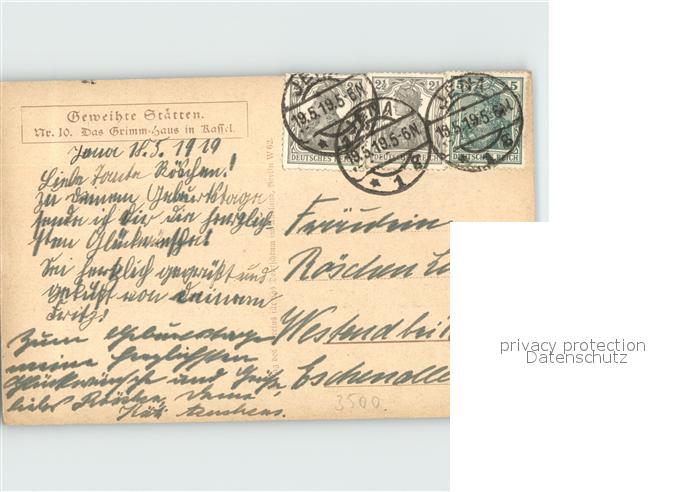 Geweihte Stätten.
Nr. 10. Das Grimm-Haus in Kassel.
Jena 18.5.1919
Liebe Tante Röschen!
Zu Deinem Geburtstage
sende ich Dir die herzlich-
sten Glückwünsche!
Sei herzlich gegrüßt und
geküßt von Deinem
Fritz!
Zum Geburtstage
meine herzlichsten
Glückwünsche und Grüße,
liebes Röschen, Deine
JENA
19.5.19.5-6N
* 1
JENA
19.5.19.5-6N
* 1 g
JENA
19.5.19.5-6N
* 1 g
2½ 2½
5
DEUTSCHES REICH
DEUTSCHES REICH
Berlin W 62
Fräulein
Röschen
Westend bei
Eschenallee
3500
privacy protection
Datenschutz